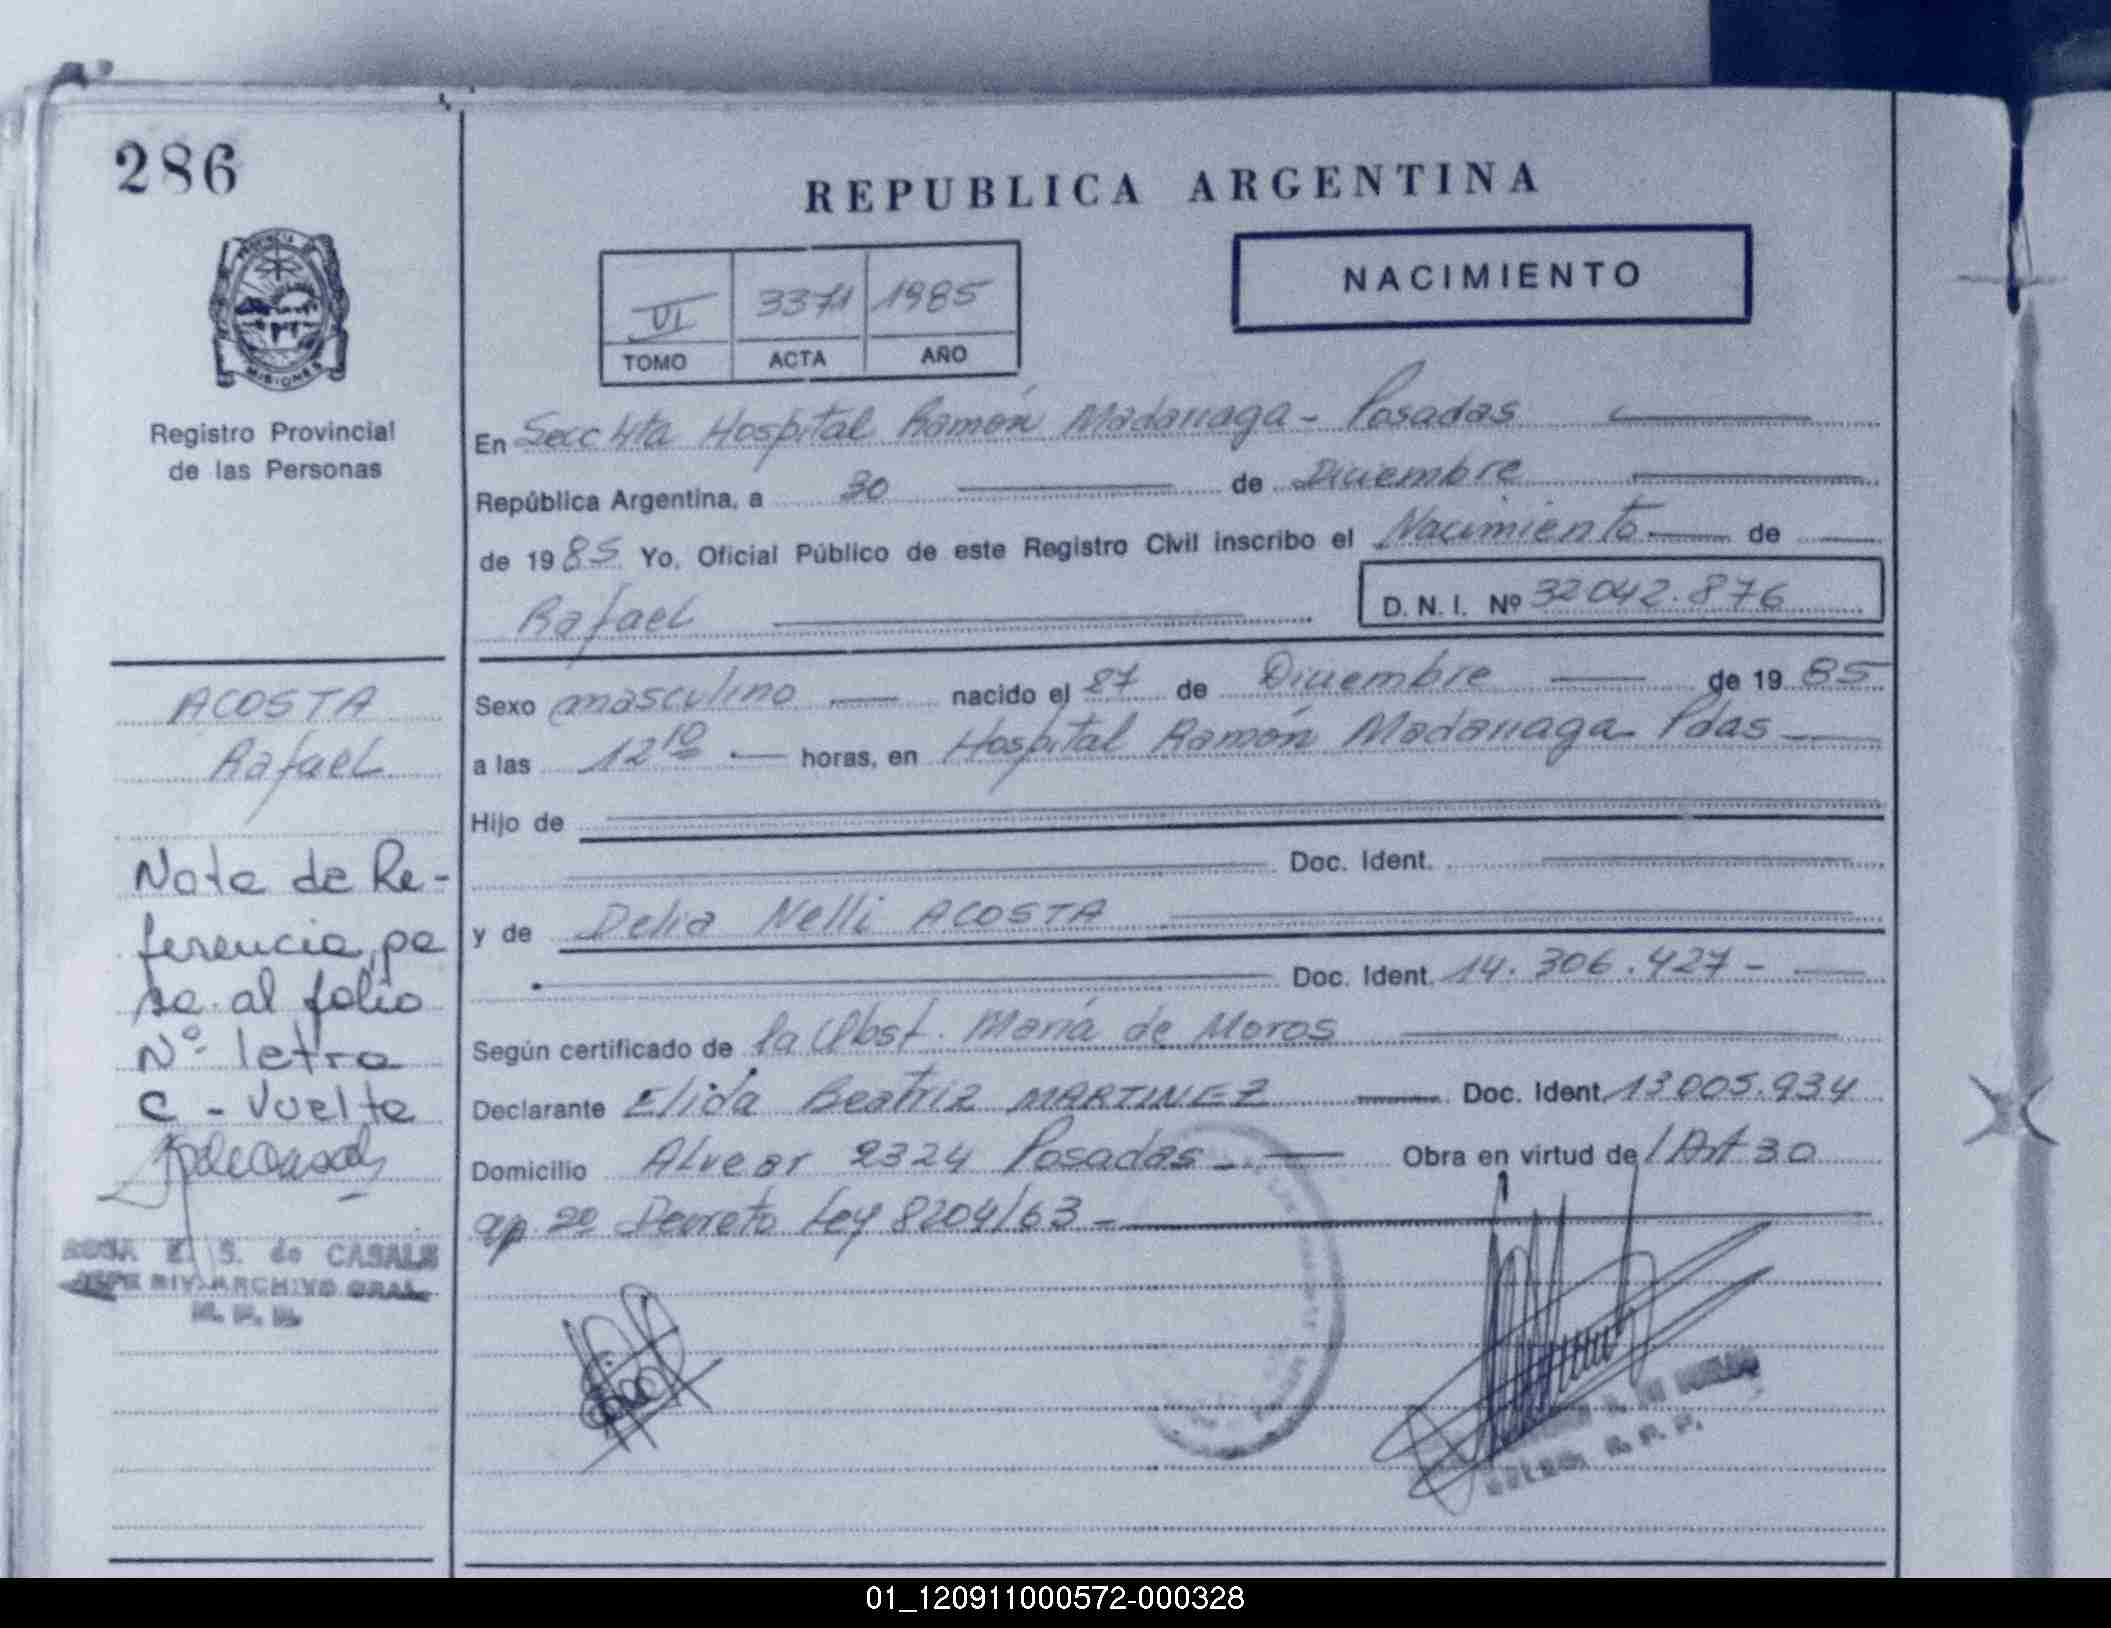 286
REPUBLICA ARGENTINA
NACIMIENTO
VI 3371 1985
TOMO ACTA AÑO
PROVINCIA DE
MISIONES
Registro Provincial
de las Personas
En Secc 4ta Hospital Ramón Madariaga - Posadas
República Argentina, a 30 de Diciembre
de 1985 Yo, Oficial Público de este Registro Civil inscribo el Nacimiento de
Rafael D. N. I. Nº 32042.876
ACOSTA
Rafael
Sexo masculino nacido el 27 de Diciembre de 1985
a las 12 10 horas, en Hospital Ramón Madariaga Pdas
Hijo de
Doc. Ident.
y de Delia Nelli ACOSTA
Doc. Ident. 14.306.427-
Según certificado de la Obst. María de Moros
Declarante Elida Beatriz MARTINEZ Doc. Ident. 13005.934
Domicilio Alvear 2324 Posadas - Obra en virtud de l Art 30
ap 2º Decreto Ley 8204/63 -
Nota de Re-
ferencia, pa
sa al folio
Nº letra
C - Vuelta
ROSA E. S. de CASALS
JEFE DIV. ARCHIVO GRAL.
01_120911000572-000328